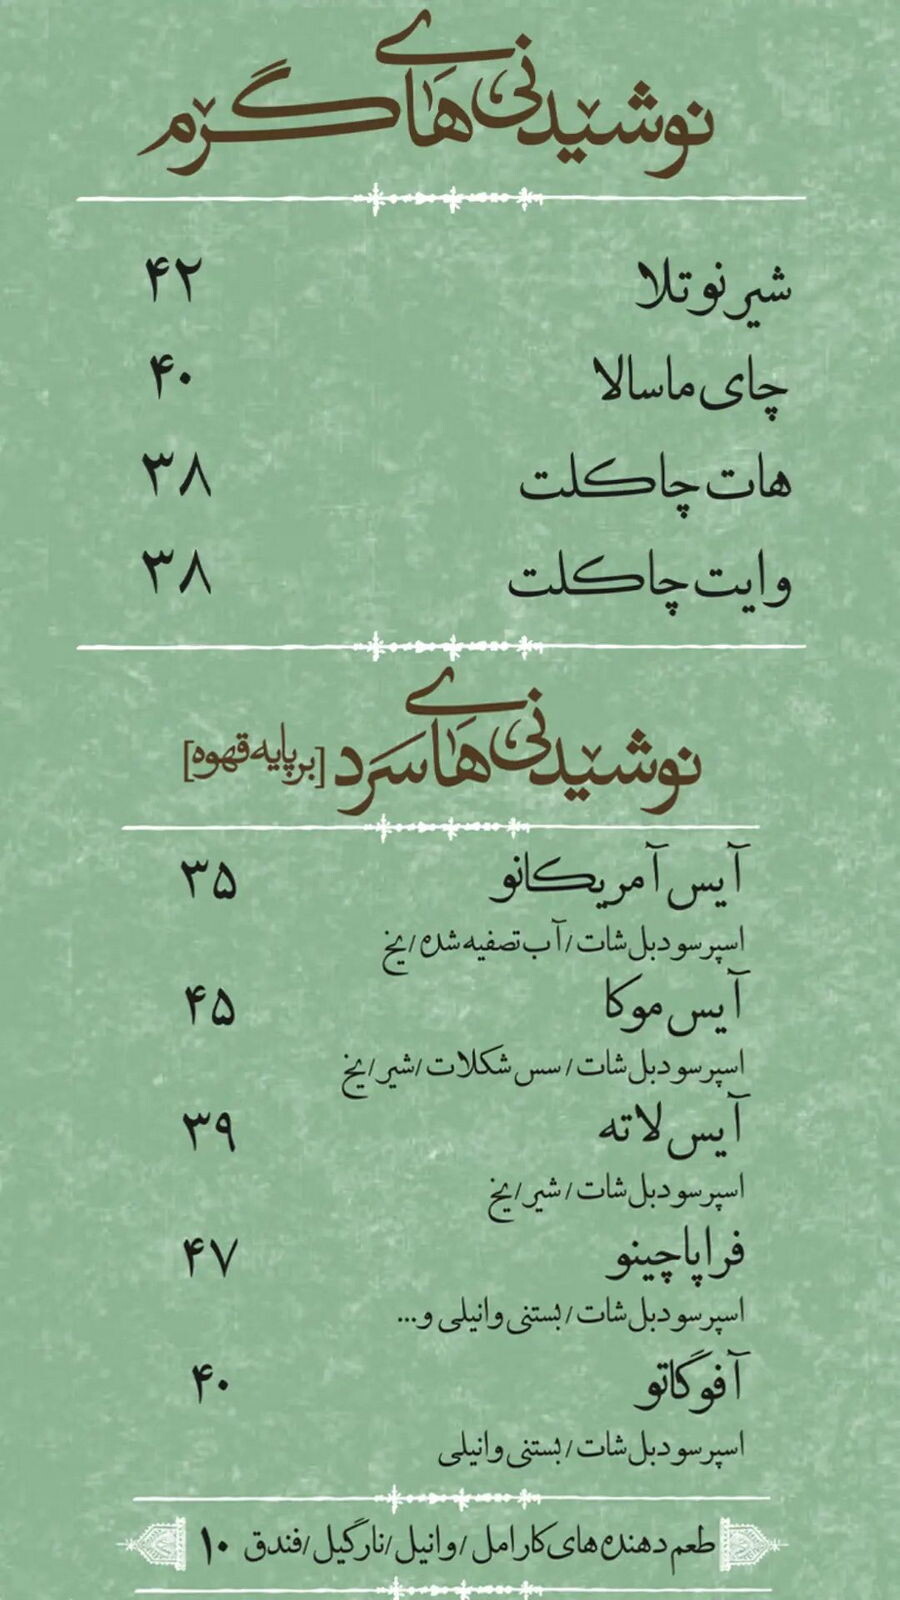 نوشیدنی‌های گرم
شیر نوتلا ۴۲
چای ماسالا ۴۰
هات چاکلت ۳۸
وایت چاکلت ۳۸
نوشیدنی‌های سرد [بر پایه قهوه]
آیس آمریکانو ۳۵
اسپرسو دبل شات / آب تصفیه شده / یخ
آیس موکا ۴۵
اسپرسو دبل شات / سس شکلات / شیر / یخ
آیس لاته ۳۹
اسپرسو دبل شات / شیر / یخ
فراپاچینو ۴۷
اسپرسو دبل شات / بستنی وانیلی و...
آفوگاتو ۴۰
اسپرسو دبل شات / بستنی وانیلی
طعم دهنده های کارامل / وانیل / نارگیل / فندق ۱۰